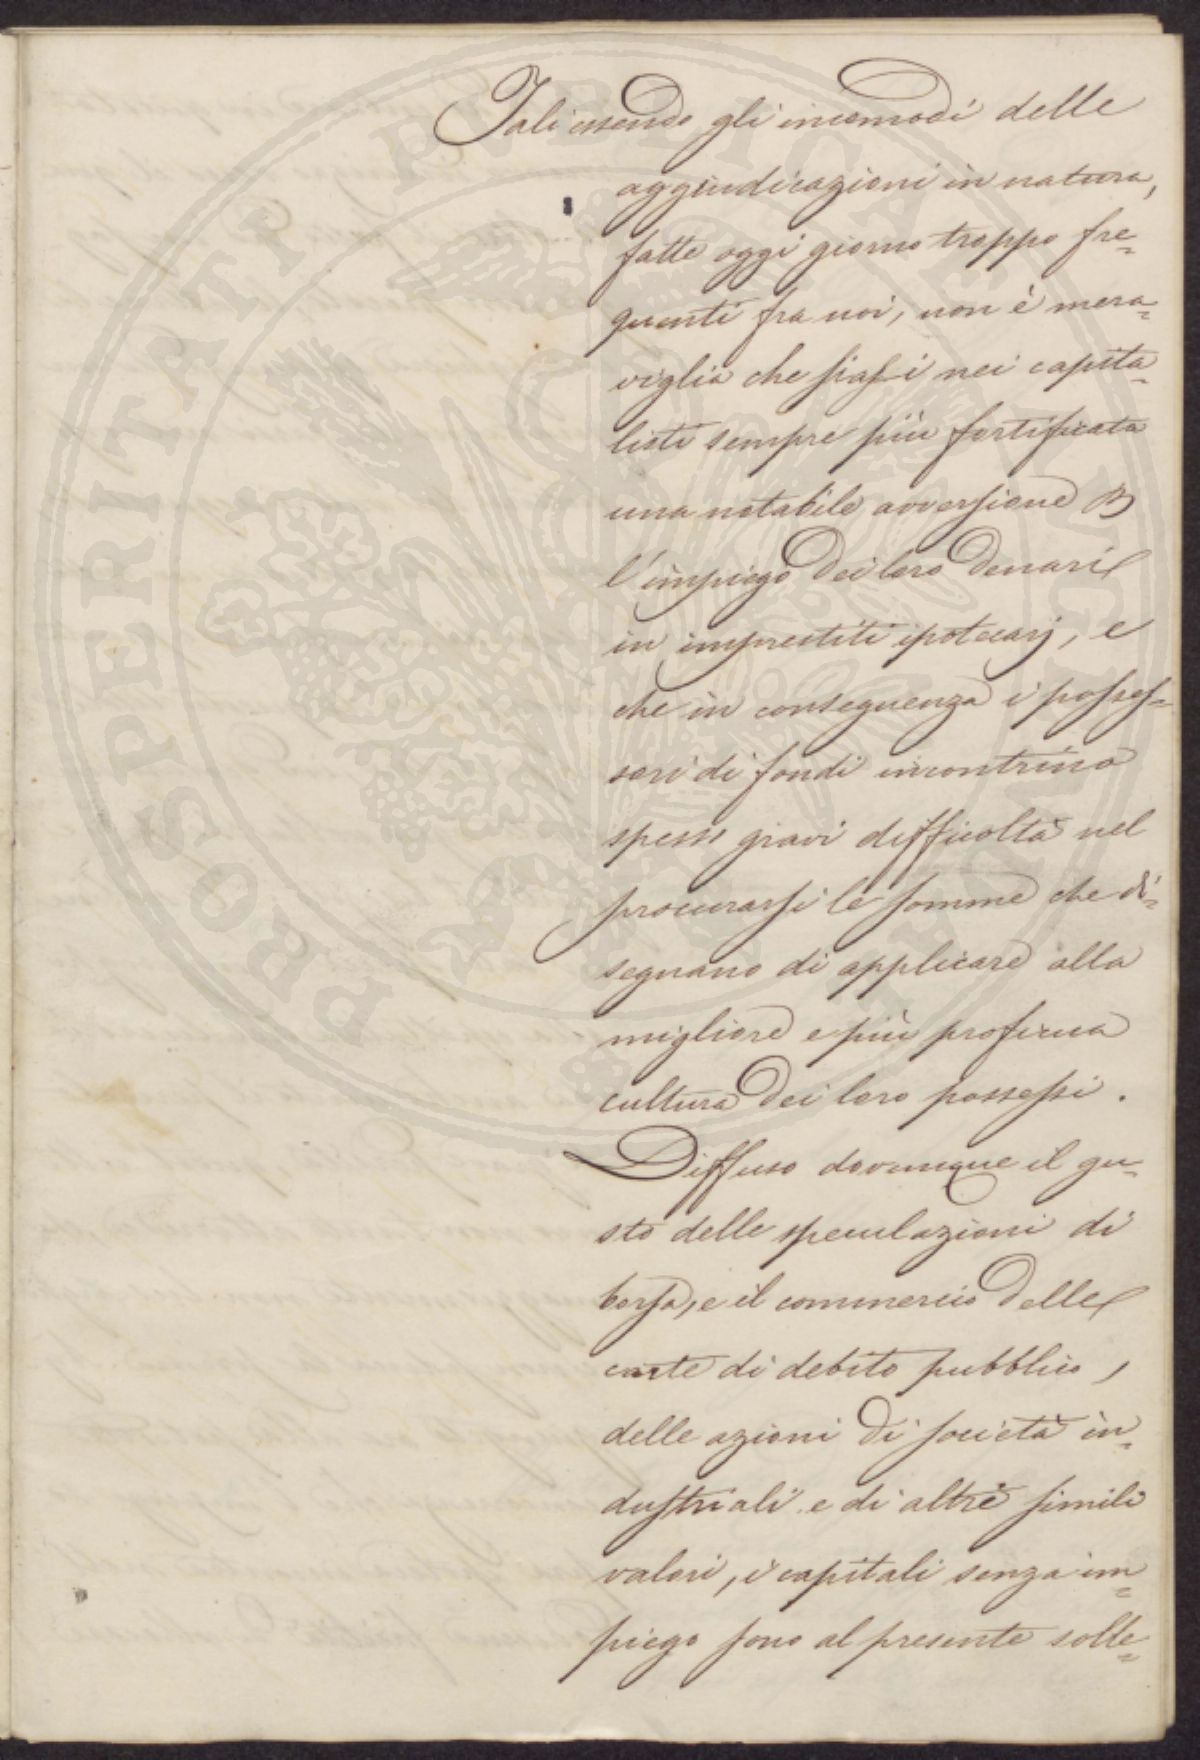 Tali essendo gli incomodi delle
aggiudicazioni in natura,
fatte oggi giorno troppo fre=
quenti fra noi, non è mera=
viglia che siasi nei capita=
listi sempre più fortificata
una notabile avversione p
l'impiego dei loro denari
in imprestiti ipotecarj, e
che in conseguenza i posses=
sori di fondi incontrino
spesso gravi difficoltà nel
procurarsi le somme che di=
segnano di applicare alla
migliore e più proficua
cultura dei loro possessi.
Diffuso dovunque il gu=
sto delle speculazioni di
borsa, e il commercio delle
carte di debito pubblico,
delle azioni di società in=
dustriali e di altri simili
valori, i capitali senza im=
piego sono al presente solle=
PROSPERITATI PUBLICAE